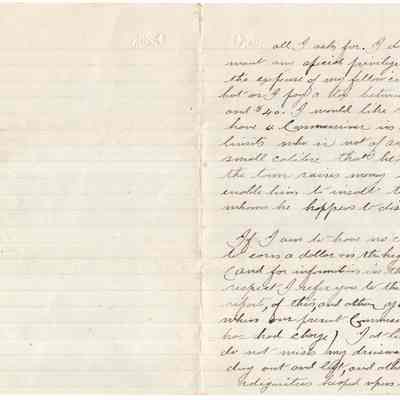 all I ask for. I d
want an special privilege
the expense of my fellow ci
but as I pay a tax between
and $40. I would like t
have a Commissioner in
limits who is not of so
small calibre that he
the town raises money
enable him to insult t
whom he happens to dis
If I am to have no c
to earn a dollar on the hig
(and for information in th
respect I refer you to the
report, of this, and other
when our present Commis
has had charge) I at l
do not miss my
day out and last, and oth
indignities heaped upon